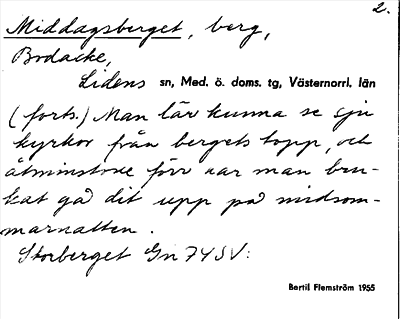 2.
Middagsberget, berg,
Bodacke,
Lidens sn, Med. ö. doms. tg, Västernorrl. län
(forts.) Man lär kunna se sju
kyrkor från bergets topp, och
åtminstone förr har man bru-
kat gå dit upp på midsom-
marnatten.
Storberget Gn 74 SV:
Bertil Flemström 1955